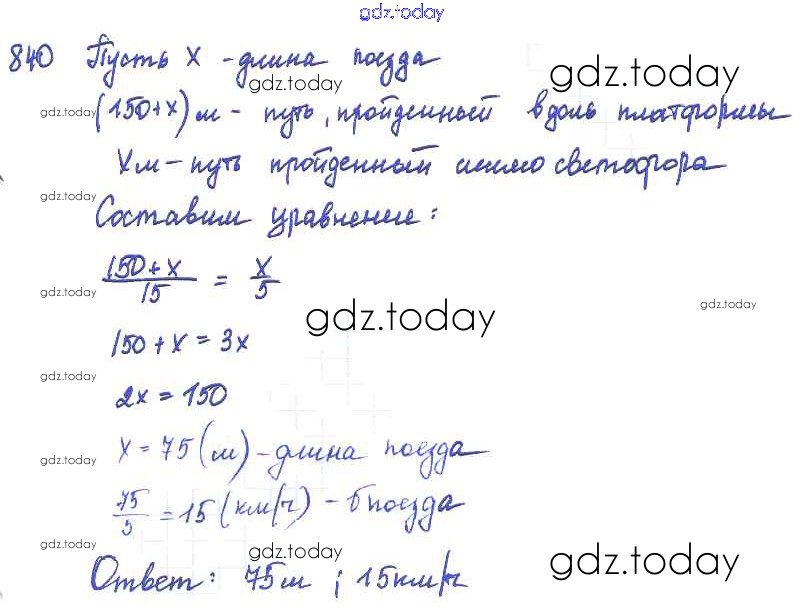 gdz.today
840 Пусть x - длина поезда
gdz.today gdz.today
gdz.today (150+x) м - путь, пройденный вдоль платформы
xм - путь пройденный мимо светофора
gdz.today
Составим уравнение:
(150+x)/15 = x/5
gdz.today gdz.today
gdz.today
150 + x = 3x
gdz.today
2x = 150
x = 75 (м) - длина поезда
gdz.today
75/5 = 15 (км/ч) - поезда
gdz.today gdz.today gdz.today
Ответ: 75м ; 15км/ч